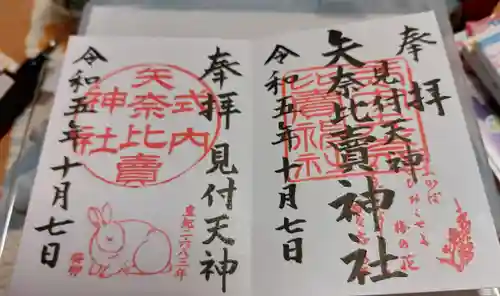 奉拝
見付天神
矢奈比賣神社
令和五年十月七日
奉拝
見付天神
式内
矢奈比賣
神社
皇紀二六八三年
令和五年十月七日